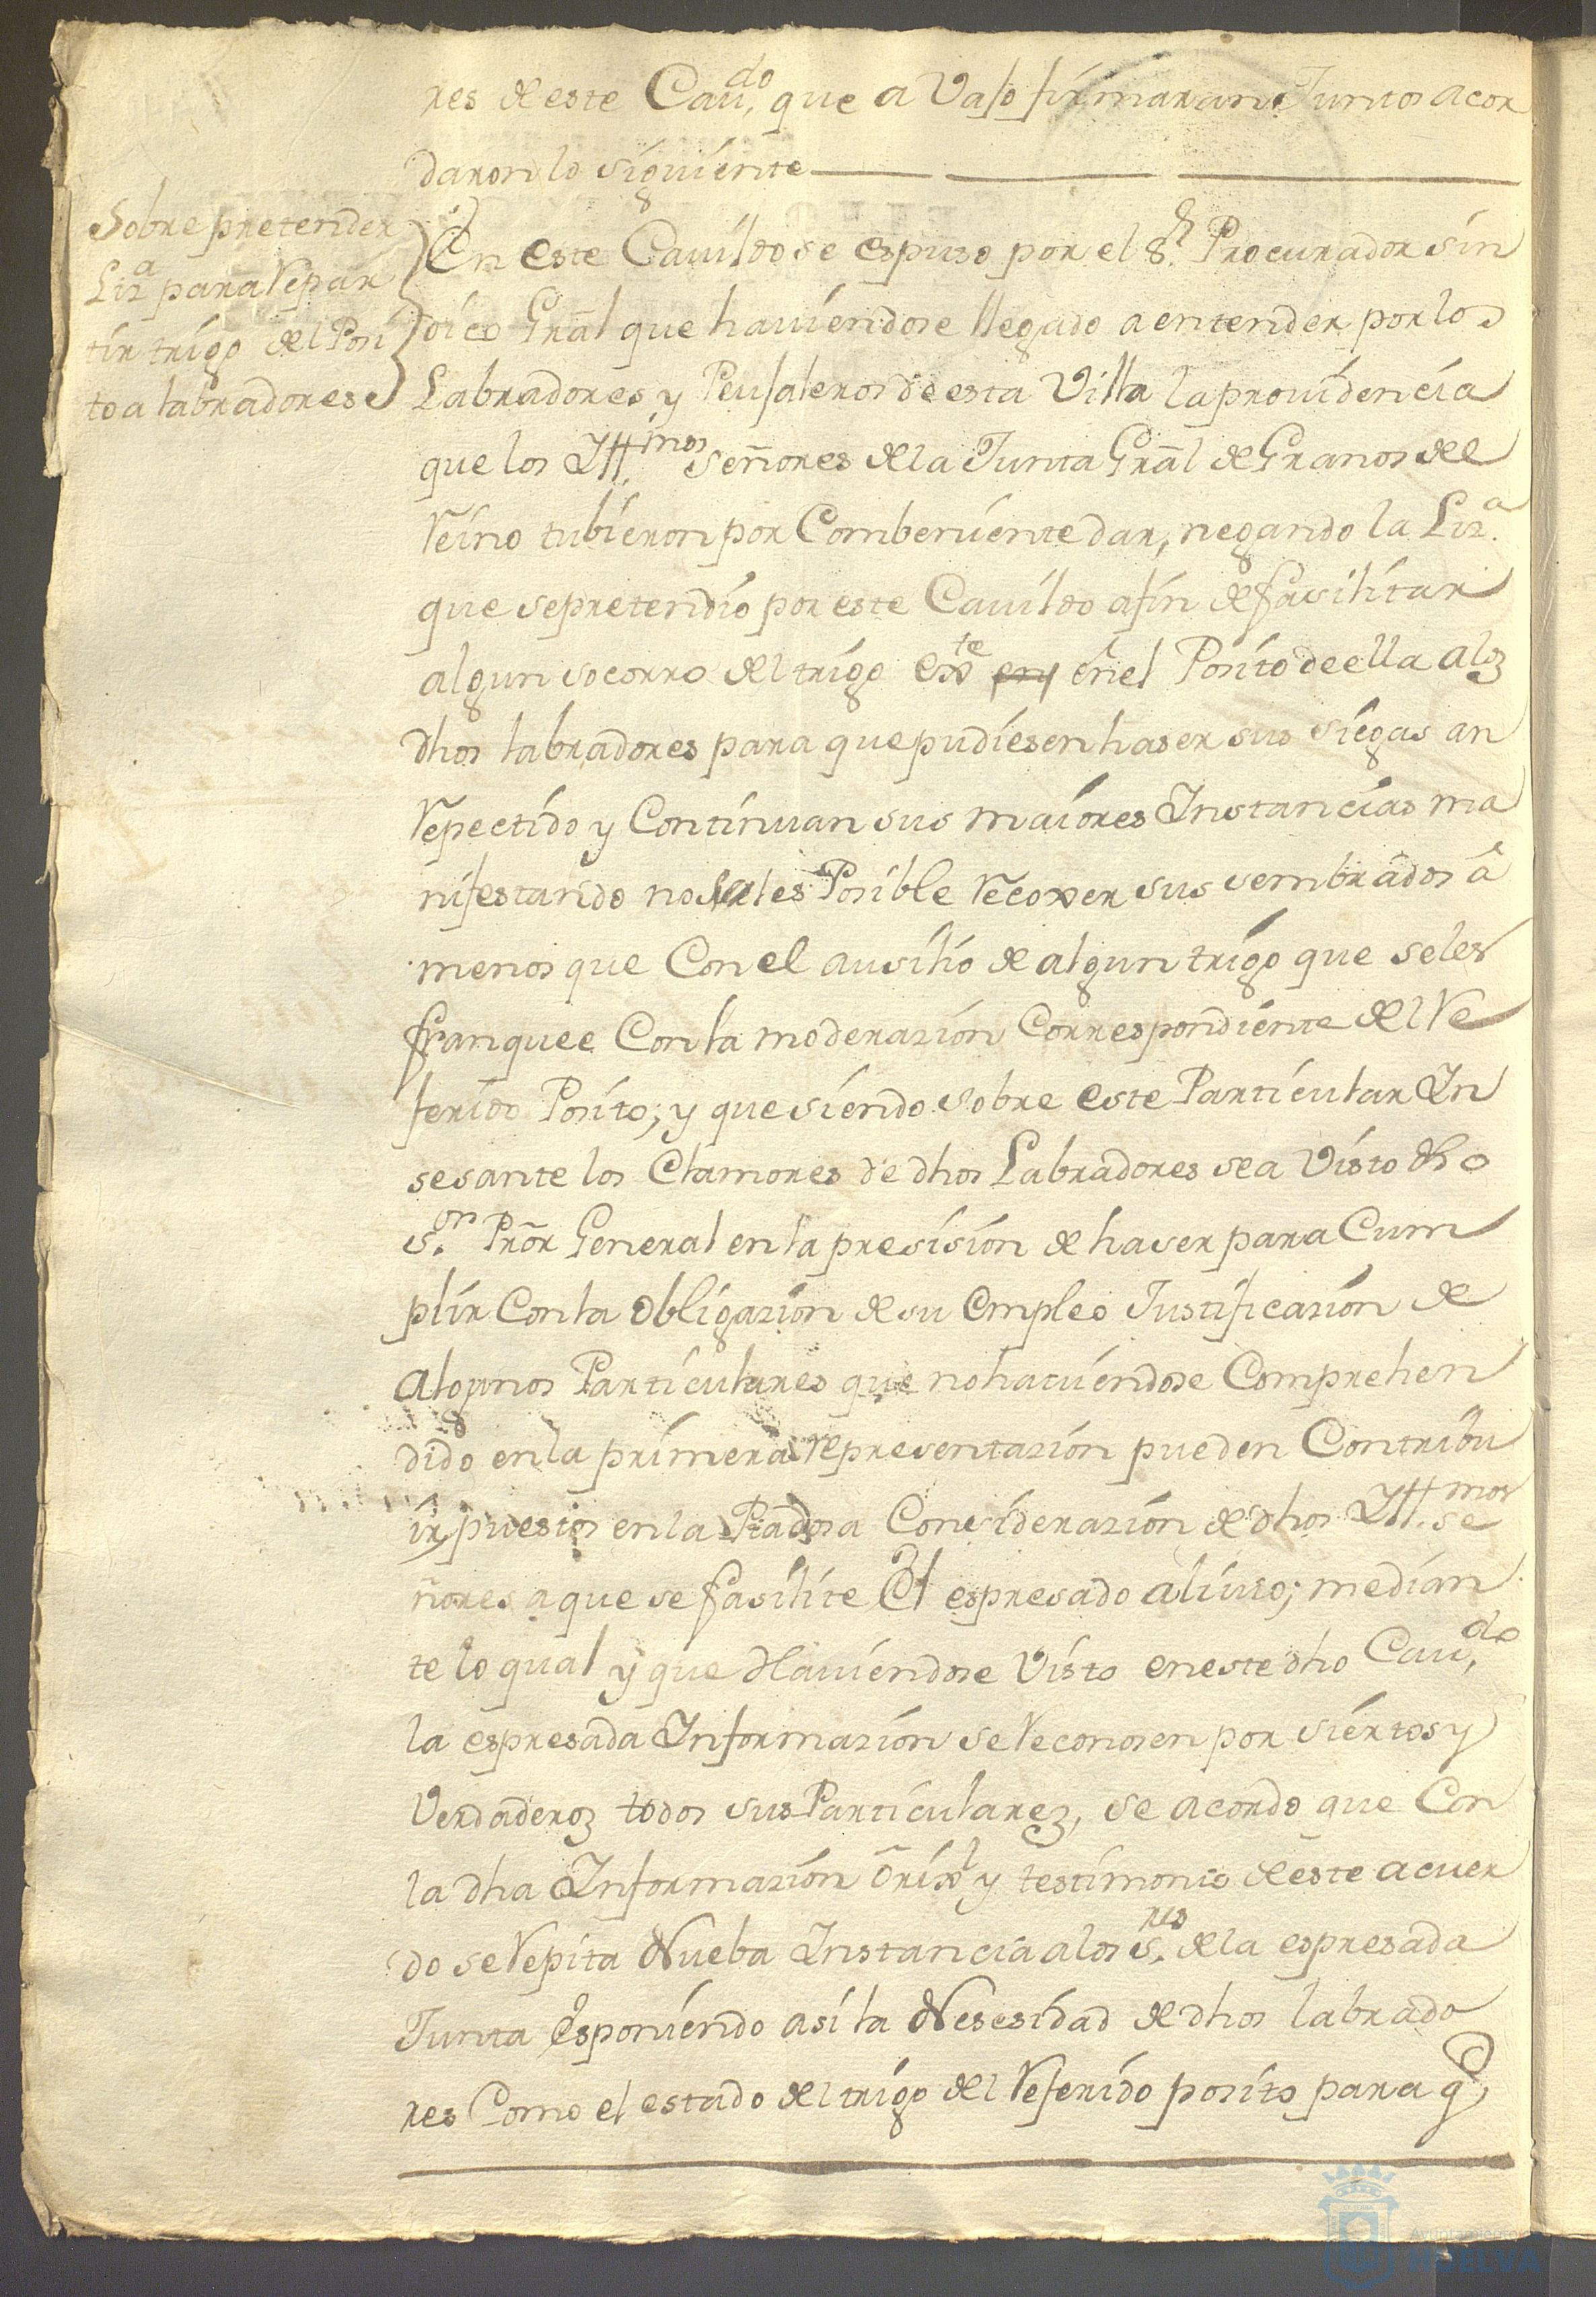 res de este Cauᵈᵒ, que a Vajo firmaran Juntos acor
daron lo siguiente
Sobre pretender
Lizᵃ para Repar
tir trigo del Posi
to a labradores
En este Cauildo se espuso por el Sʳ. Procurador sin
dico Gral que hauiendose llegado a entender por los
Labradores y Peujaleros de esta Villa la prouidencia
que los Yllᵐᵒˢ Señores de la Junta Gral de Granos del
Reino tubieron por Combeniente dar, negando la Lizᵃ.
que se pretendio por este Cauildo afin de fasilitar
algun socorro del trigo exᵗᵉ en el Posito de ella alos
dhos labradores para que pudiesen haser sus siegas an
Repectido y Continuan sus maiores Ynstancias ma
nifestando no serles Posible Recoxer sus sembrados â
menos que Con el ausilio de algun trigo que seles
franquee Con la moderazion Correspondiente del Re
ferido Posito; y que siendo sobre este Particular Yn
sesante los Clamores de dhos Labradores sea Visto dho
Sᵒʳ. Pror General en la presision de haser para Cum
plir Con la obligazion de su empleo Justificazion de
algunos Particulares que no hauiendose Comprehen
dido en la primera representazion pueden Contribu
ir puestos en la Piadosa Considerazion de dhos Yllᵐᵒˢ. se
ñores a que se fasilite El espresado aliuio; median
te lo qual y que Hauiendose Visto en este dho Cauᵈᵒ,
la espresada Informazion se Reconosen por siertos y
Verdaderos todos sus Particulares, se acordo que Con
la dha Ynformazion Orixˡ y testimonio de este acuer
do se Repita Nueba Ynstancia alos Sʳᵉˢ. de la espresada
Junta Esponiendo asi la Nesesidad de dhos labrado
res Como el estado del trigo del Referido posito para q̃
Ayuntamiento
HUELVA